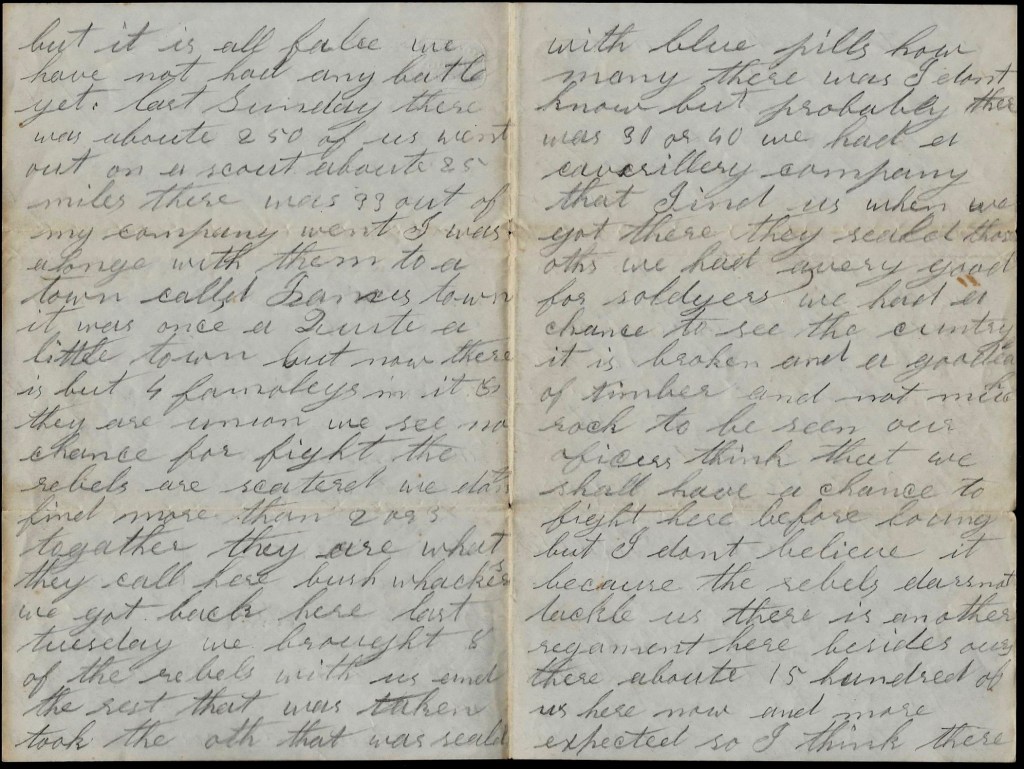 but it is all false we
have not had any batle
yet. last Sunday there
was aboute 250 of us went
out on a scout aboute 25
miles there was 33 out of
my company went I was
alonge with them to a
town called James town
it was once a Quite a
little town but now there
is but 4 famoleys in it &
they are union we see no
chance for fight the
rebels are scatered we dont
find more than 2 or 3
togather they are what
they call here bush whackers
we got back here last
tuesday we brought 8
of the rebels with us and
the rest that was taken
took the oth that was seald
with blue pills how
many there was I dont
know but probably there
was 30 or 40 we had a
company
that Jind us when we
got there they sealed those
oths we had avery good
for soldyers we had a
chance to see the cuntry
it is broken and a good
of timber and not
rock to be seen our
oficers think that we
shall have a chance to
fight here before loung
but I dont believe it
because the rebels darsnot
tackle us there is another
regament here besides ours
there aboute 15 hundred of
us here now and more
expected so I think there